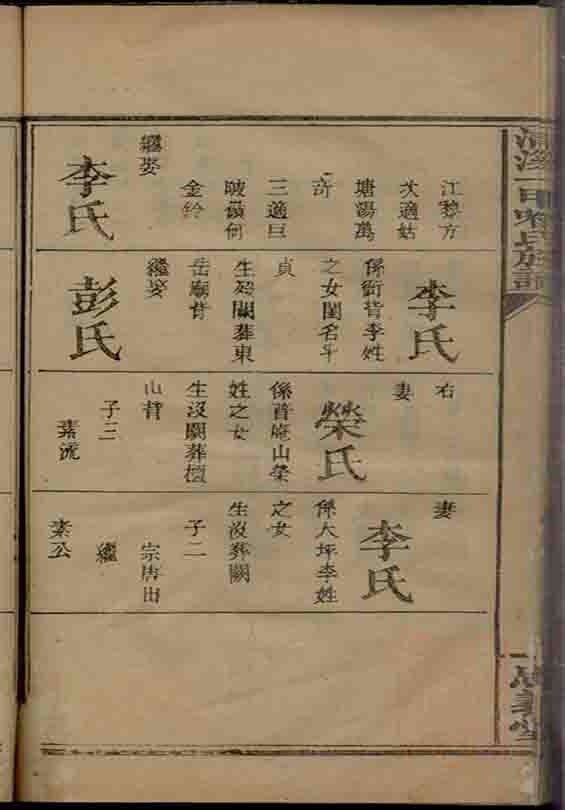 江黎方
次適姑
塘湯萬
奇
三適巨
陂黃何
金鈴
繼娶
李氏
李氏
係衙背李姓
之女閨名斗
貞
生歿闕葬東
岳廟背
繼娶
彭氏
右
妻
榮氏
係普庵山榮
姓之女
生沒闕葬檀
山背
子三
素流
妻
李氏
係大坪李姓
之女
生沒葬闕
子二
宗唐出
繼
素公